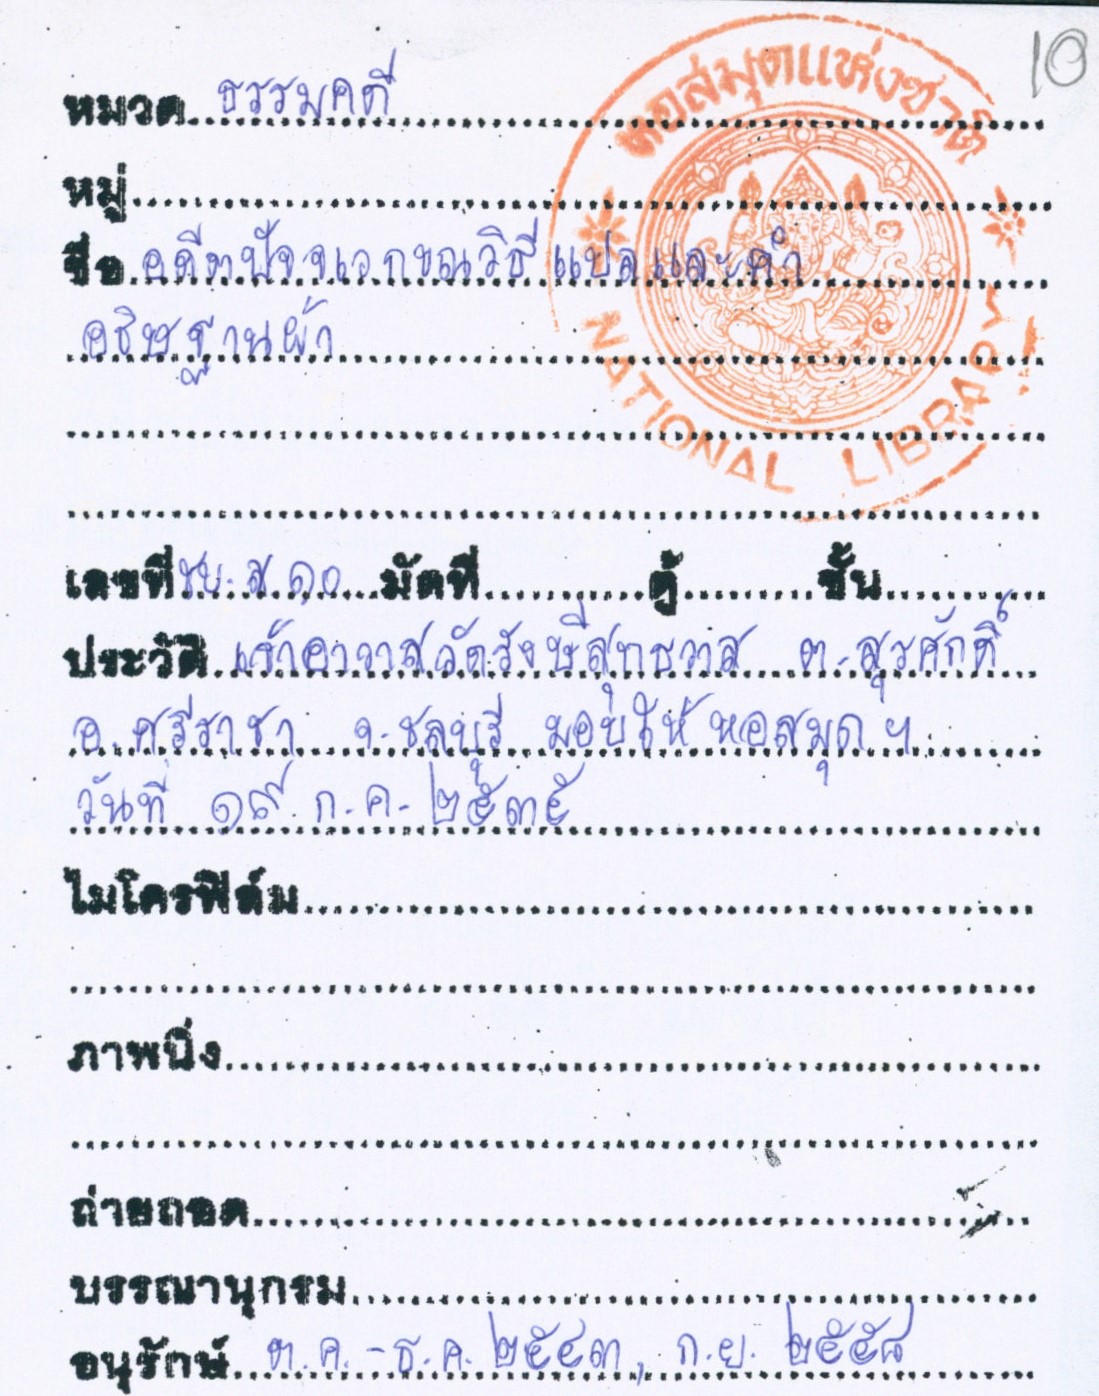 10
หอสมุดแห่งชาติ
NATIONAL LIBRARY
หมวด ธรรมคดี
หมู่
ชื่อ อดีตปัจจเวกขณวิธีแปลและคำ
อธิษฐานผ้า
เลขที่ ชบ.ส.๑๐ มัดที่ ตู้ ชั้น
ประวัติ เจ้าอาวาสวัดรังษีสุทธวาส ต.สุรศักดิ์
อ.ศรีราชา จ.ชลบุรี มอบให้หอสมุดฯ
วันที่ ๑๙ ก.ค. ๒๕๓๕
ไมโครฟิล์ม
ภาพนิ่ง
ถ่ายถอด
บรรณานุกรม
อนุรักษ์ ต.ค.-ธ.ค. ๒๕๔๓, ก.ย. ๒๕๕๘